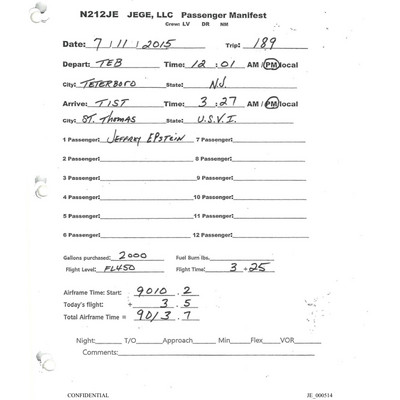 N212JE JEGE, LLC Passenger Manifest
Crew: LV DR NM
Date: 7 / 11 / 2015 Trip: 189
Depart: TEB Time: 12 : 01 AM / PM local
City: TETERBORO State: N.J.
Arrive: TIST Time: 3 : 27 AM / PM local
City: ST. THOMAS State: U.S.V.I.
1 Passenger: JEFFREY EPSTEIN 7 Passenger:
2 Passenger: 8 Passenger:
3 Passenger: 9 Passenger:
4 Passenger: 10 Passenger:
5 Passenger: 11 Passenger:
6 Passenger: 12 Passenger:
Gallons purchased: 2000 Fuel Burn lbs.
Flight Level: FL450 Flight Time: 3 + 25
Airframe Time: Start: 9010 . 2
Today's flight: + 3 . 5
Total Airframe Time = 9013 . 7
Night: T/O Approach Min Flex VOR
Comments:
CONFIDENTIAL JE_000514